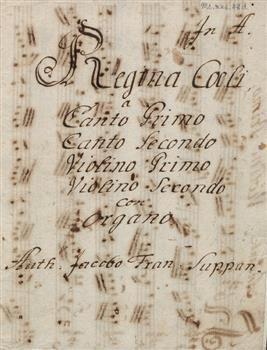 In A.
Regina Coeli,
a
Canto Primo
Canto Secondo
Violino Primo
Violino Secondo
con
Organo
Auth. Jacobo Fran: Suppan.